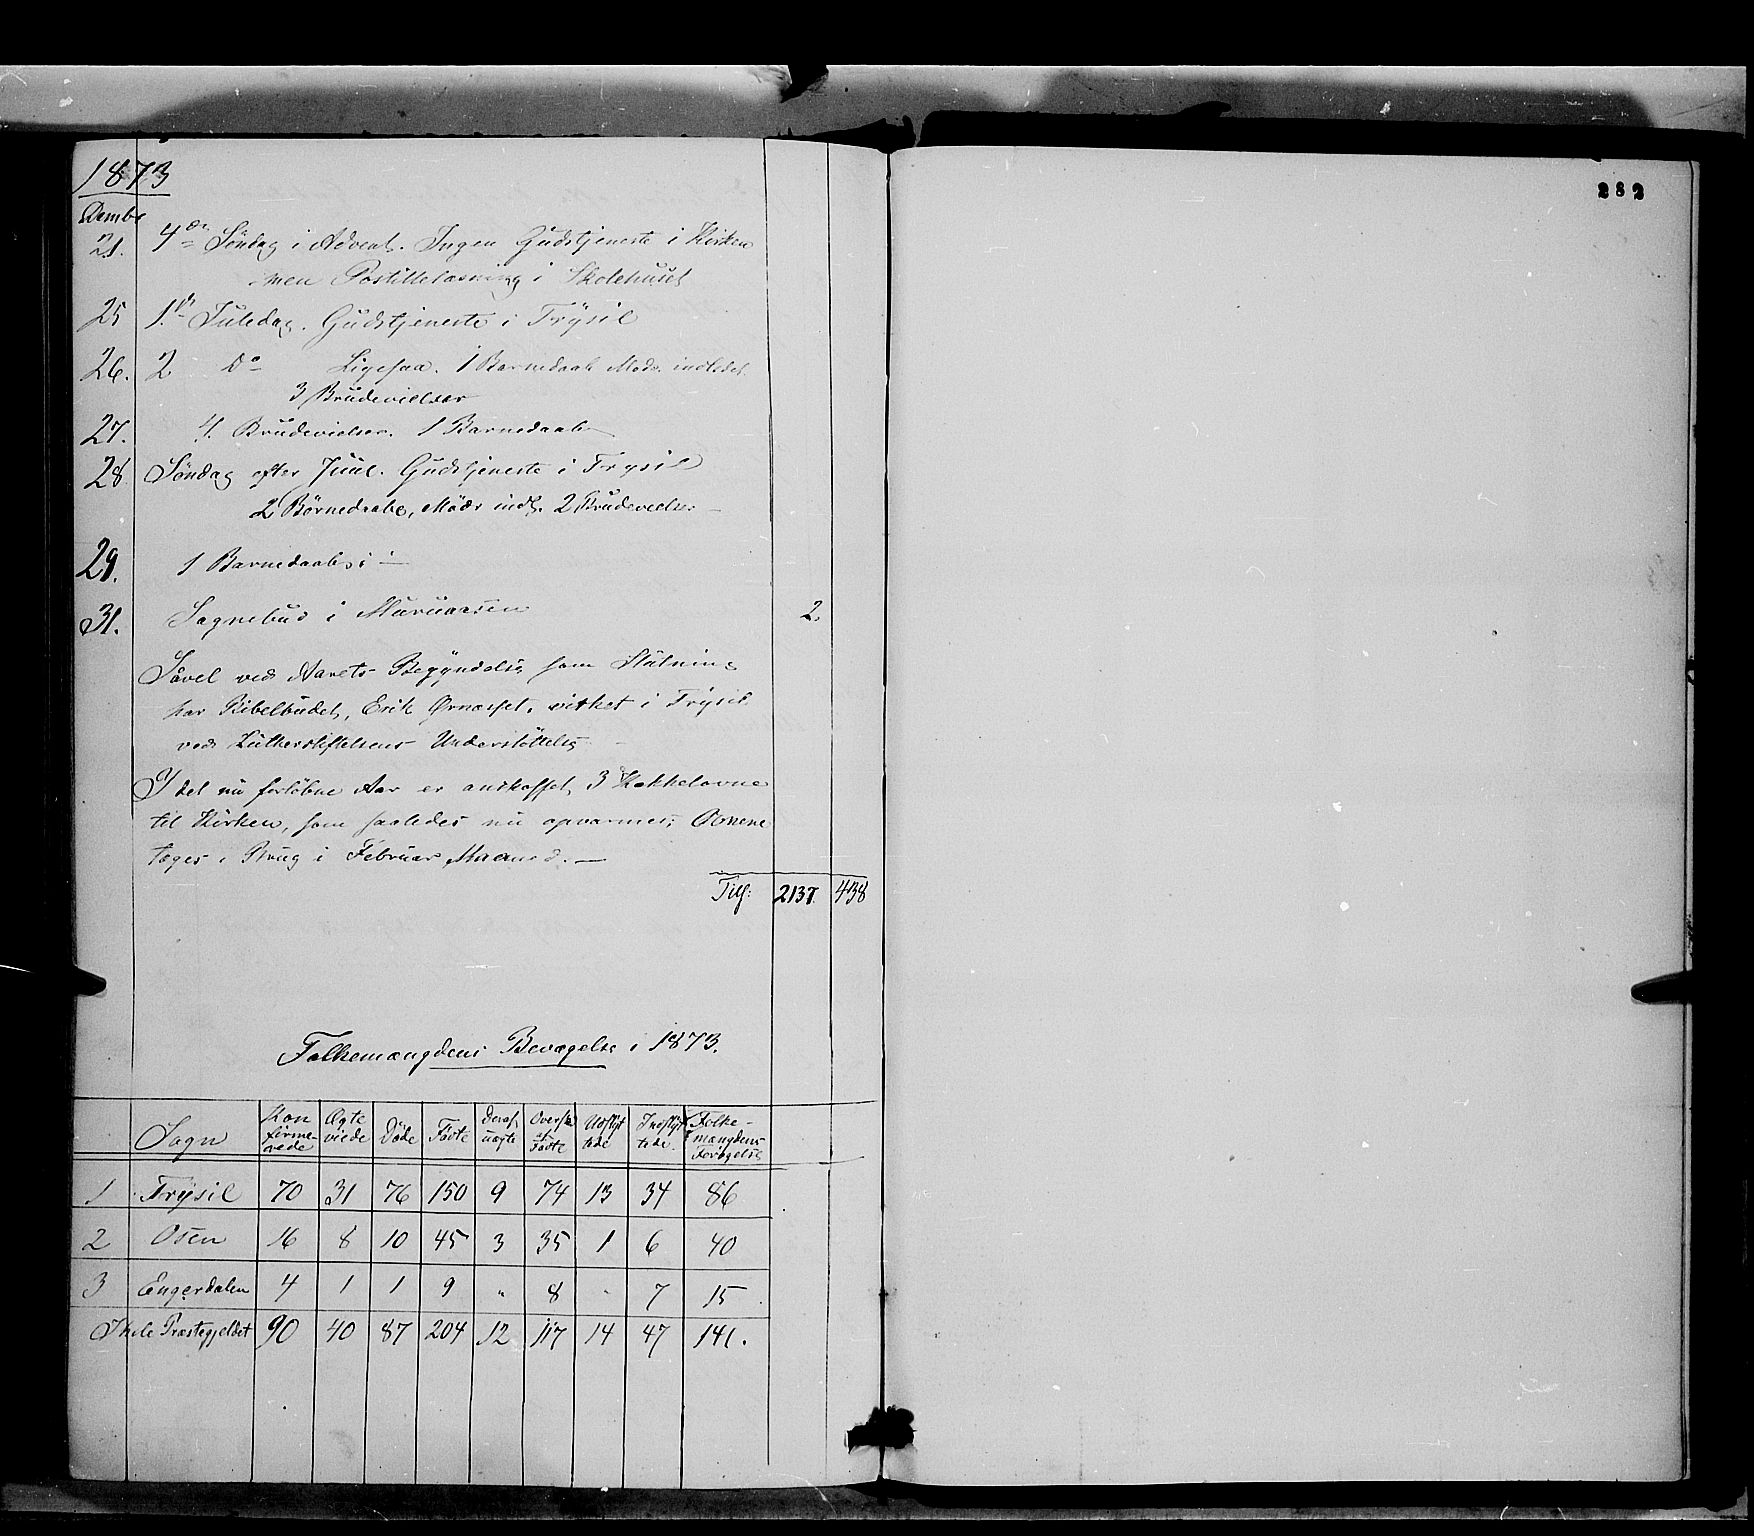 1873
Decmbr
21. 4de Søndag i Advent. Ingen Gudstjeneste i Kirken
men Postillelæsning i Skolehuset
25 1ste Juledag. Gudstjeneste i Trysil
26. 2 Do Ligesaa. 1 Barnedaab Modr. indledet.
3 Brudevielser
27. 4. Brudevielser. 1 Barnedaab
28 Søndag efter Juul. Gudstjeneste i Trysil
2 Børnedaabe, Mödr indl. 2 Brudevielser
29. 1 Barnedaab
31. Sognebud i 2.
Savel ved Aarets Begyndelse som Slutning
har Bibelbudet, Erik Ørnæsset, virket i Trysil
ved Lutherstiftelsens Understöttelse
I det nu forløbne Aar er anskaffet 3 Kakkelovne
til Kirken, som saaledes nu opvarmes; Ovnene
toges i Brug i Februar Maaned.
Tils: 2137 438
Folkemængdens Bevægelse i 1873.
Sogn Kon firme- rede Ægte viede Døde Fødte Deraf uægte Oversk. af Fødte Udflyt tede Indflyt tede. Folke- mængdens Forøgelse
1 Trysil 70 31 76 150 9 74 13 34 86
2 Osen 16 8 10 45 3 35 1 6 40
3 Engerdalen 4 1 1 9 " 8 " 7 15
I hele Præstegjeldet 90 40 87 204 12 117 14 47 141.
282